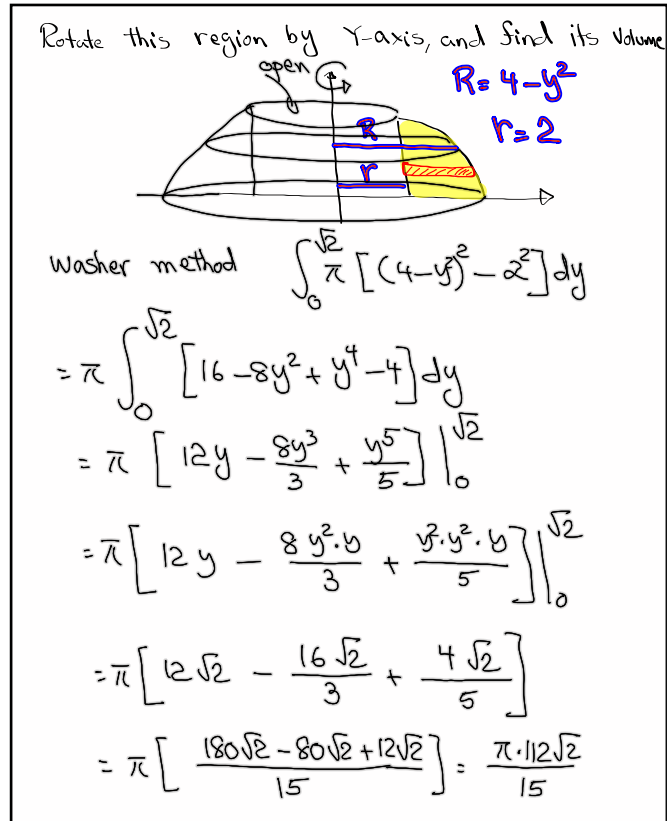 Rotate this region by Y-axis, and find its Volume
open
R = 4 - y²
r = 2
R
r
Washer method ∫₀^√2 π [(4-y²)² - 2²] dy
= π ∫₀^√2 [16 - 8y² + y⁴ - 4] dy
= π [12y - 8y³/3 + y⁵/5] |₀^√2
= π [12y - 8y²·y/3 + y²·y²·y/5] |₀^√2
= π [12√2 - 16√2/3 + 4√2/5]
= π [(180√2 - 80√2 + 12√2)/15] = π·112√2/15